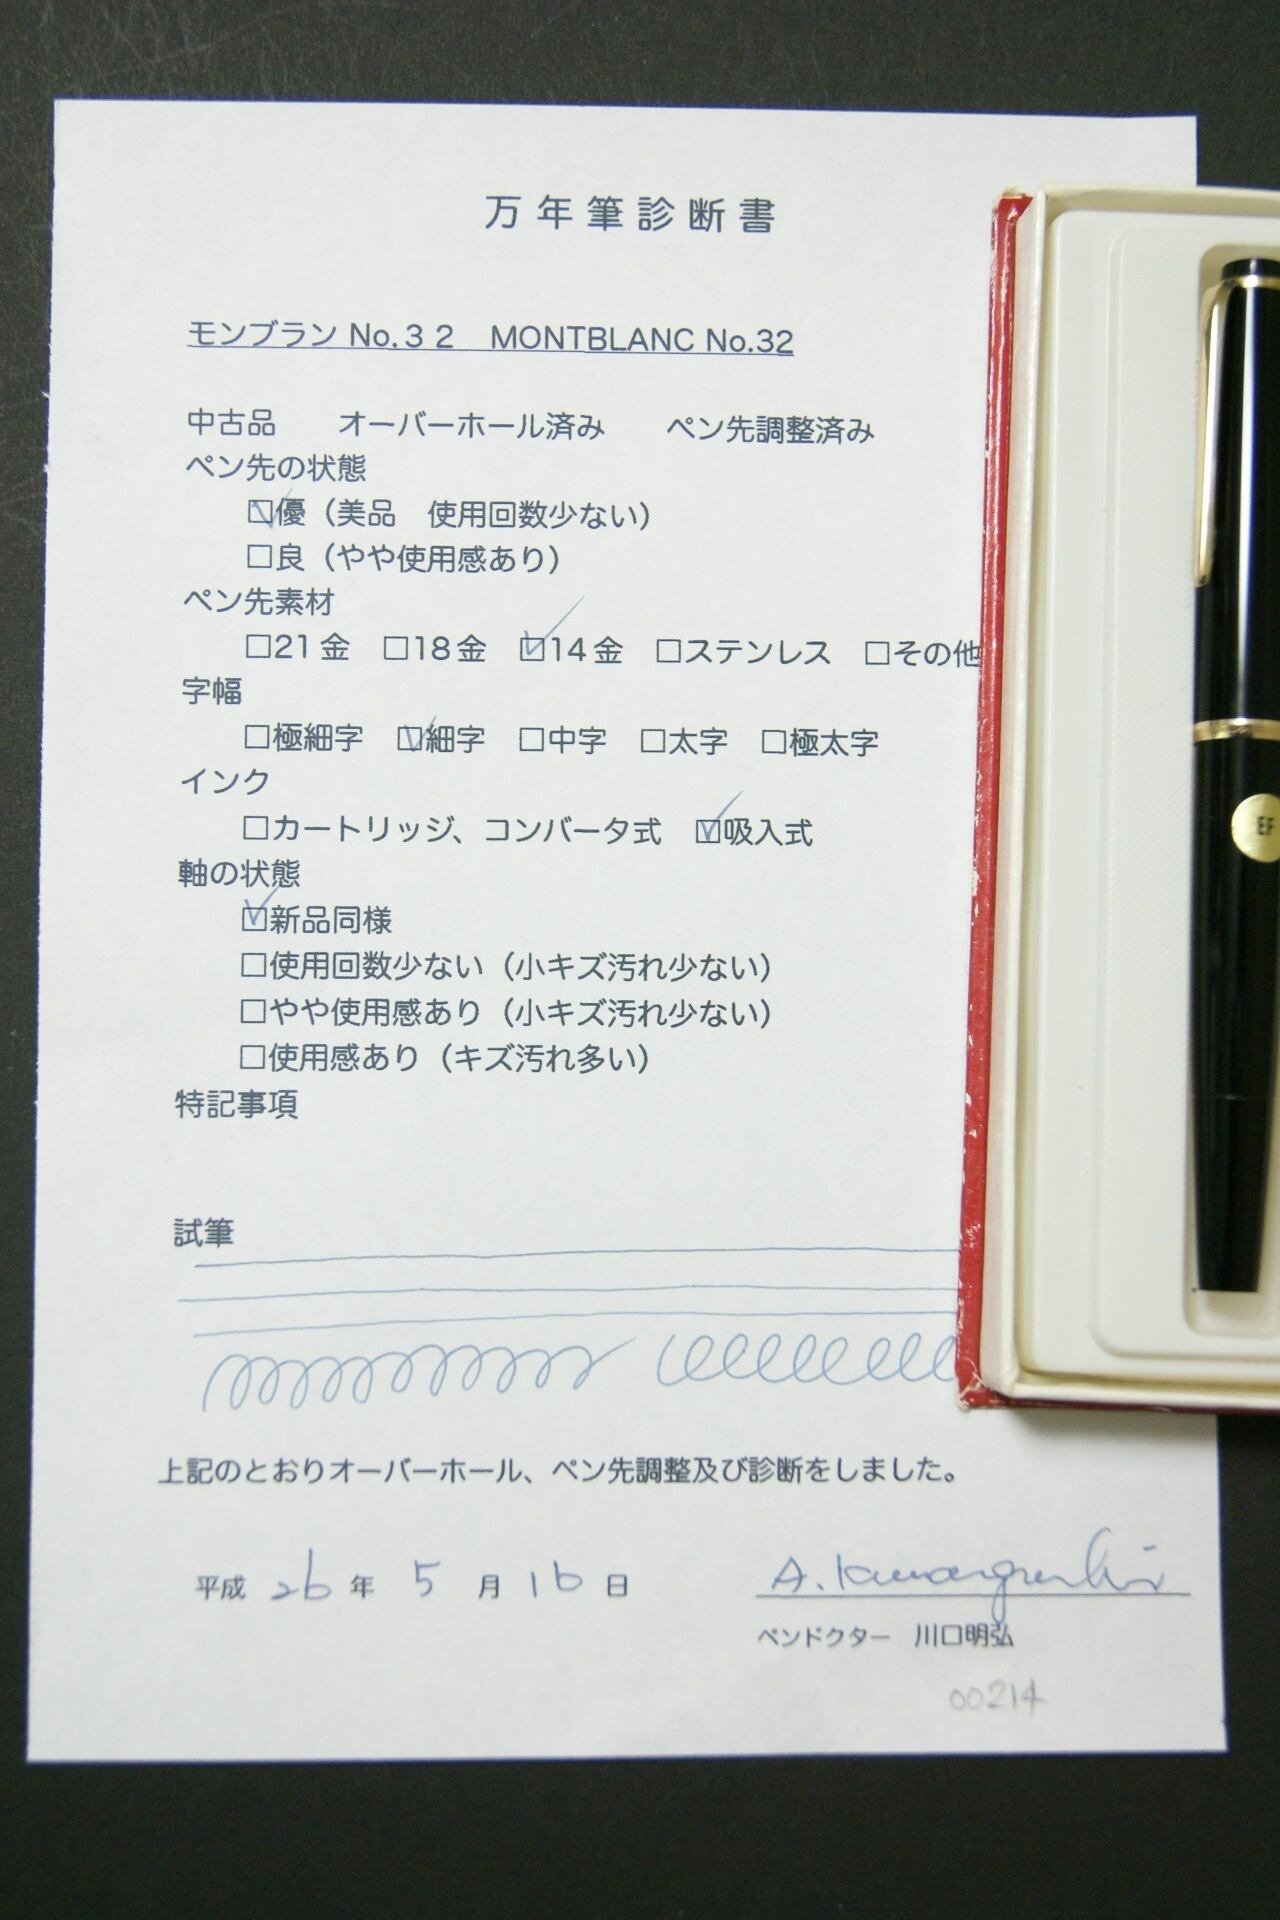 万年筆診断書
モンブラン No.３２　MONTBLANC No.32
中古品　オーバーホール済み　ペン先調整済み
ペン先の状態
☑優（美品　使用回数少ない）
□良（やや使用感あり）
ペン先素材
□21金　□18金　☑14金　□ステンレス　□その他
字幅
□極細字　☑細字　□中字　□太字　□極太字
インク
□カートリッジ、コンバータ式　☑吸入式
軸の状態
☑新品同様
□使用回数少ない（小キズ汚れ少ない）
□やや使用感あり（小キズ汚れ少ない）
□使用感あり（キズ汚れ多い）
特記事項
試筆
上記のとおりオーバーホール、ペン先調整及び診断をしました。
平成 26 年 5 月 16 日
A. Kawaguchi
ペンドクター　川口明弘
00214
EF